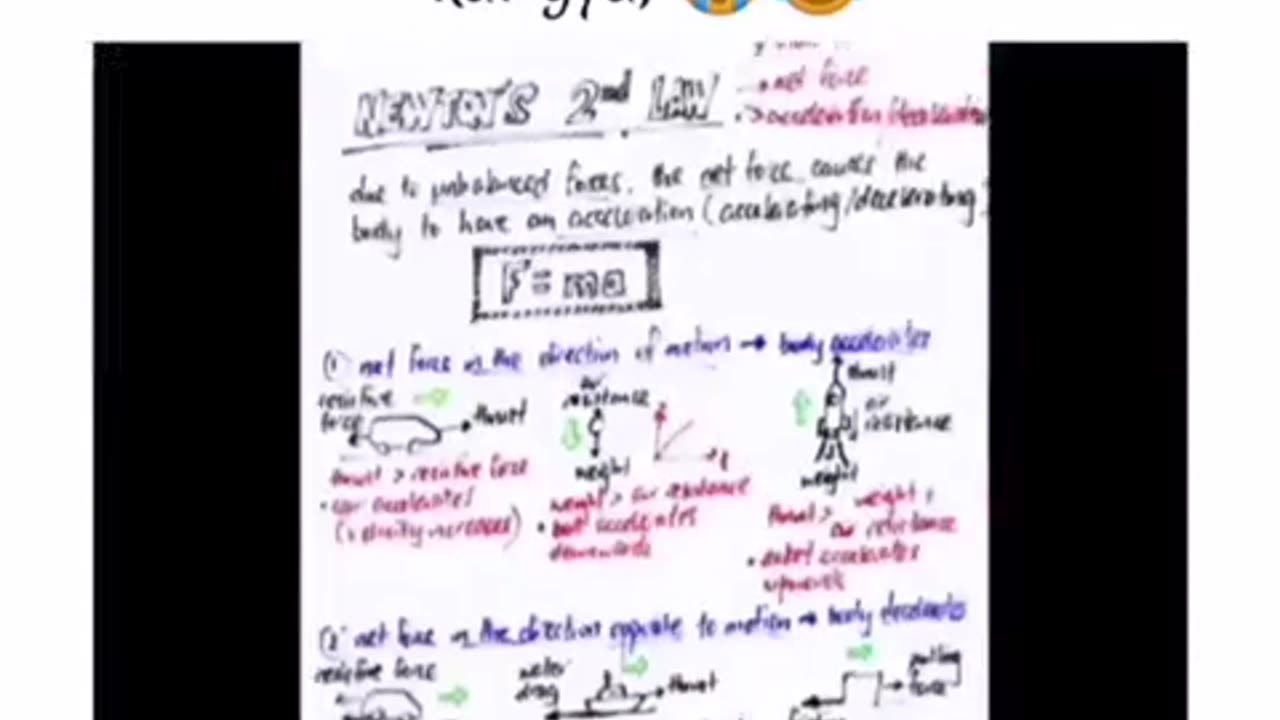 NEWTON'S 2nd LAW
→ net force
due to unbalanced forces, the net force causes the
body to have an acceleration (accelerating/decelerating)
F = ma
(1) net force in the direction of motion → body accelerates
resistive force
thrust
thrust > resistive force
• car accelerates
(velocity increases)
air resistance
weight
weight > air resistance
• accelerates
downwards
thrust
air resistance
weight
thrust > weight +
air resistance
• accelerates
upwards
(2) net force in the direction opposite to motion → body decelerates
resistive force
water drag
thrust
pulling force